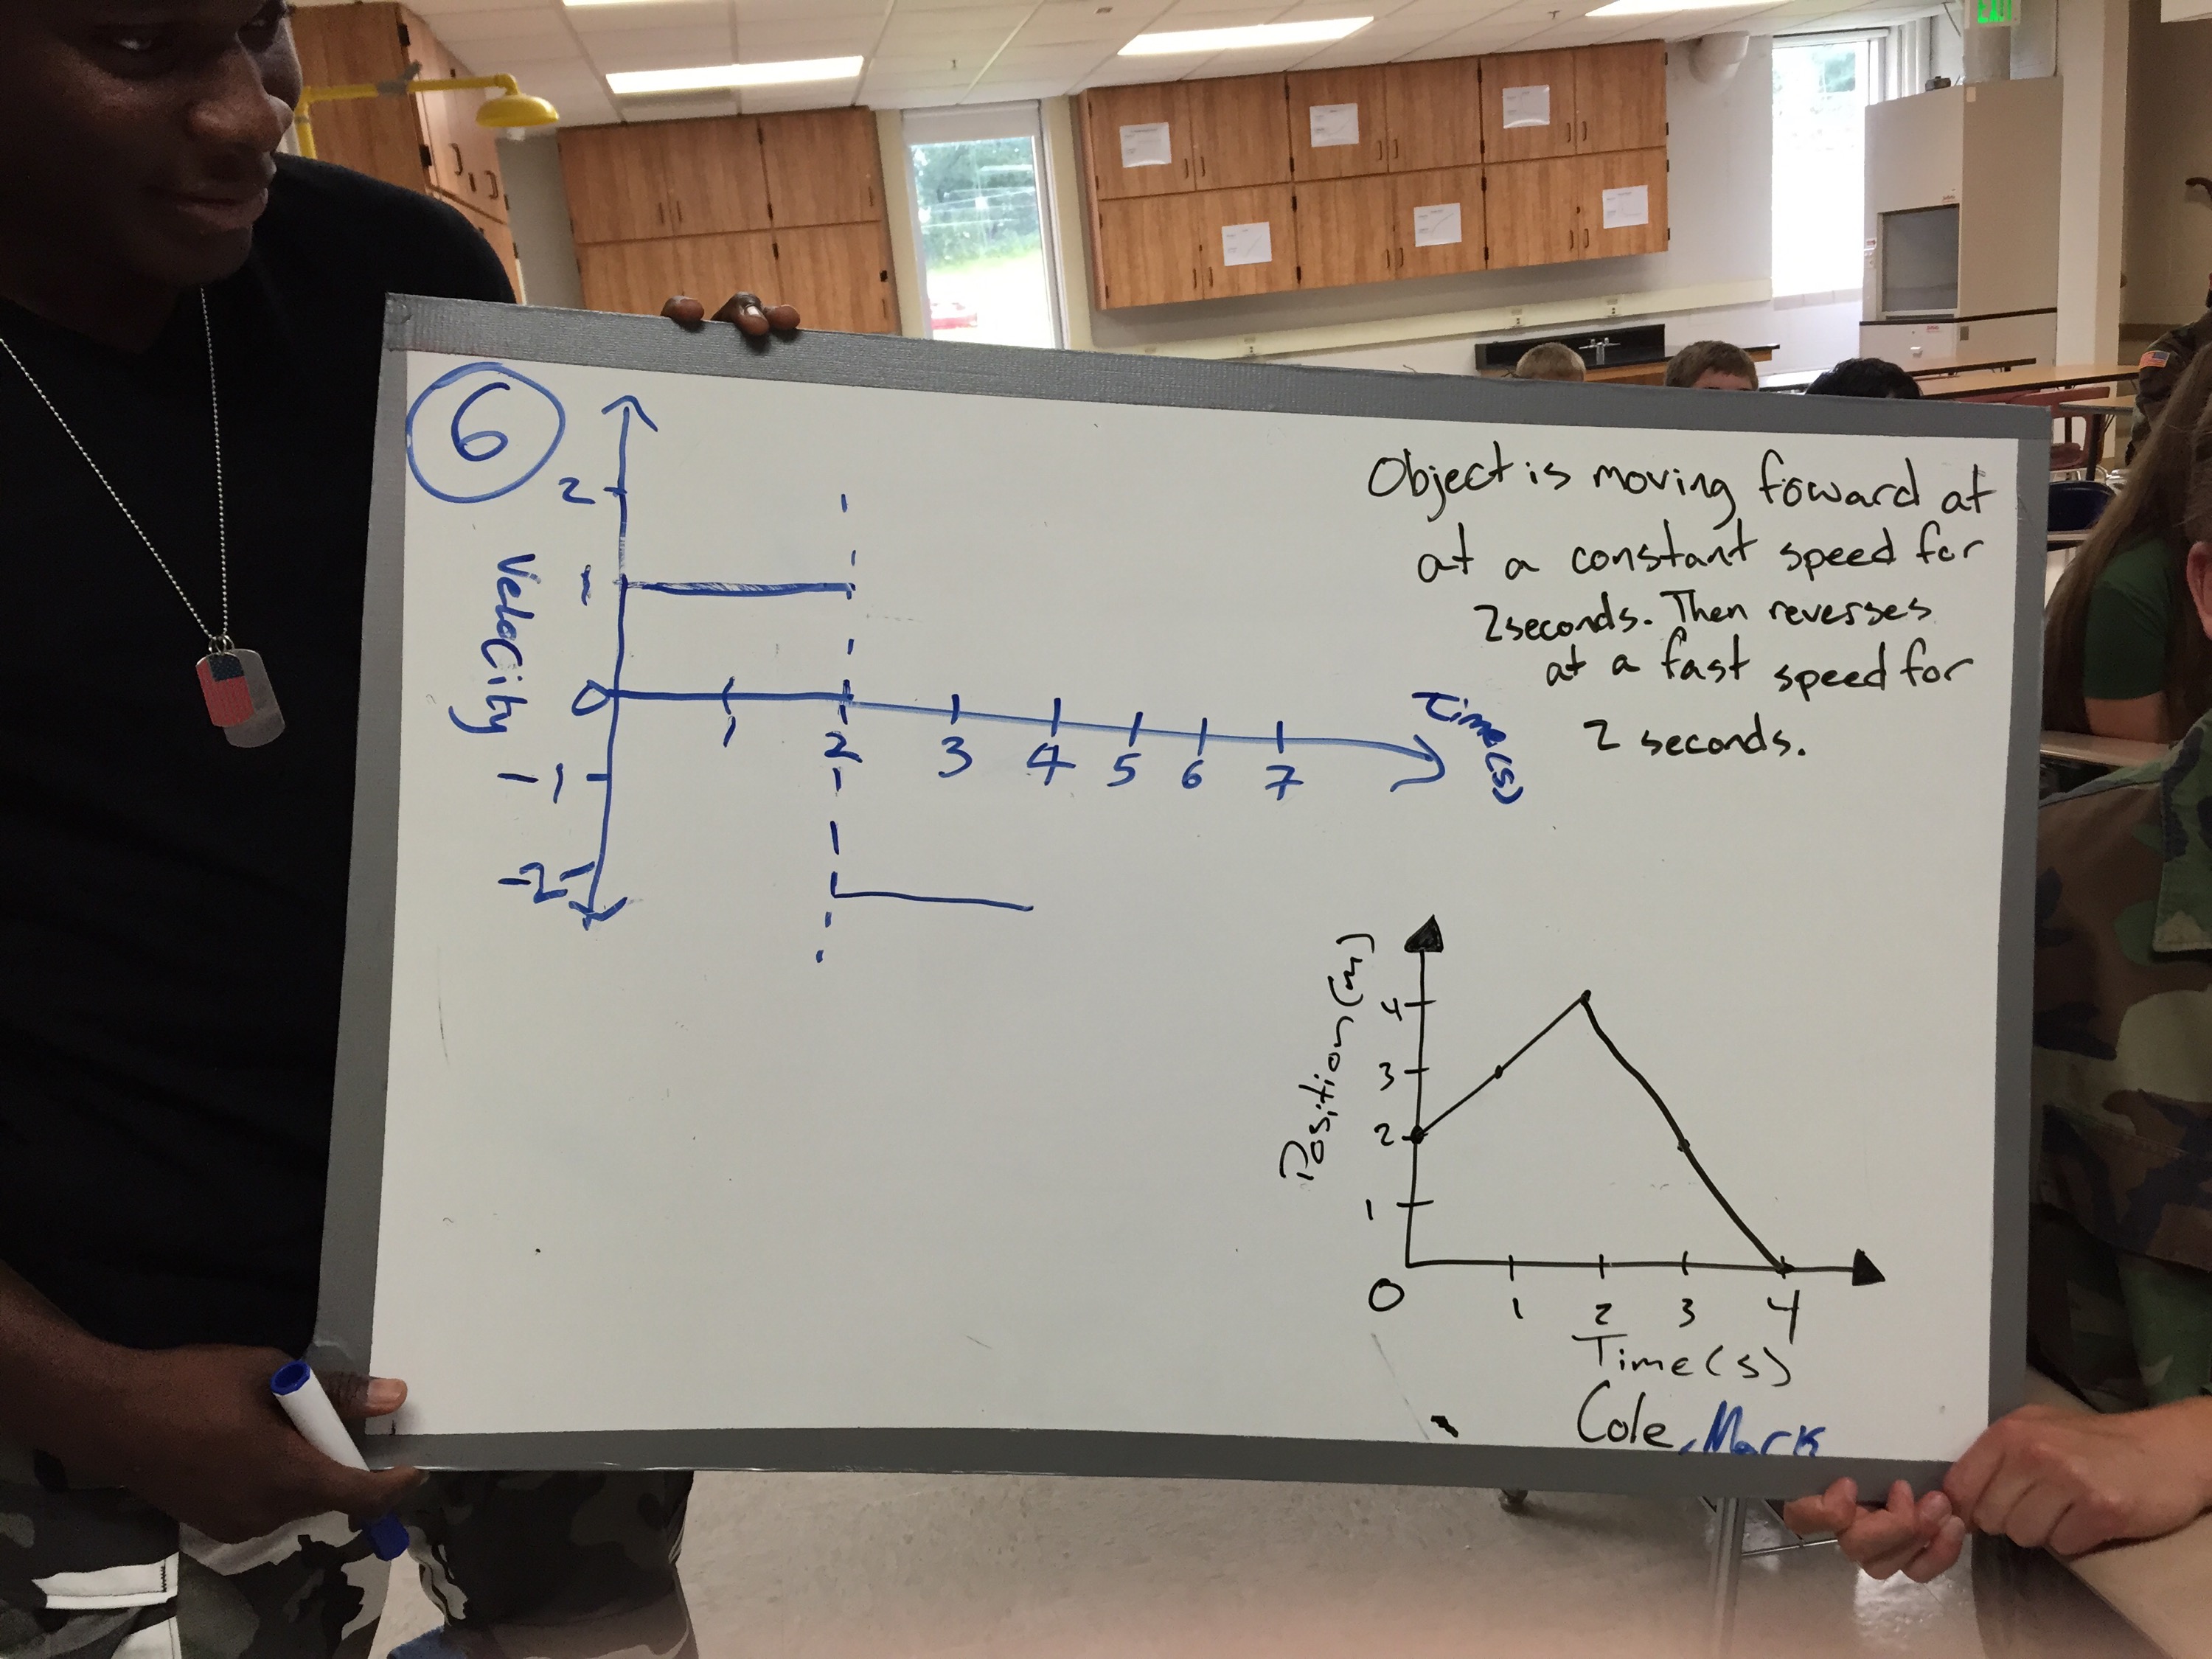 EXIT
6
2
1
0
-1
-2
Velocity
1 2 3 4 5 6 7
Time(s)
Object is moving foward at
at a constant speed for
2 seconds. Then reverses
at a fast speed for
2 seconds.
Position (m)
4
3
2
1
0
1 2 3 4
Time (s)
Cole, Mark